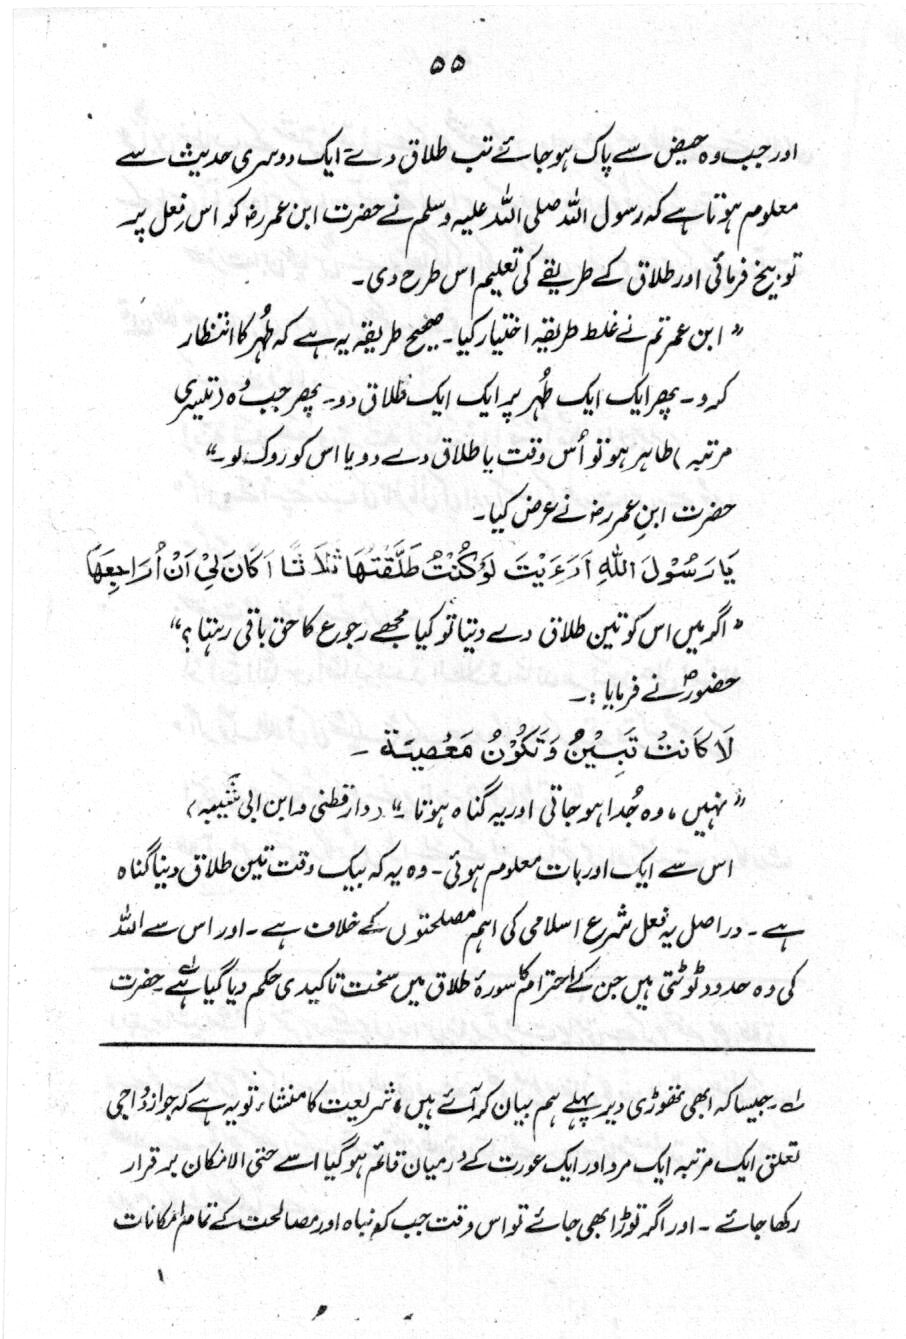 ۵۵
اور جب وہ حیض سے پاک ہو جائے تب طلاق دے ایک دوسری حدیث سے
معلوم ہوتا ہے کہ رسول اللہ صلی اللہ علیہ وسلم نے حضرت ابن عمر رض کو اس فعل پر
توبیخ فرمائی اور طلاق کے طریقے کی تعلیم اس طرح دی۔
"ابن عمر تم نے غلط طریقہ اختیار کیا۔ صحیح طریقہ یہ ہے کہ طُہر کا انتظار
کرو۔ پھر ایک ایک طُہر پر ایک ایک طلاق دو۔ پھر جب وُہ (تیسری
مرتبہ) طاہر ہو تو اُس وقت یا طلاق دے دو یا اس کو روک لو۔"
حضرت ابنِ عمر رض نے عرض کیا۔
يَا رَسُوْلَ اللهِ اَرَءَيْتَ لَوْ كُنْتُ طَلَّقْتُهَا ثَلَاثًا اَكَانَ لِيْ اَنْ اُرَاجِعَهَا
"اگر میں اس کو تین طلاق دے دیتا تو کیا مجھے رجوع کا حق باقی رہتا؟"
حضورؐ نے فرمایا:۔
لَا كَانَتْ تَبِيْنُ وَتَكُوْنُ مَعْصِيَةً ۔
"نہیں، وہ جُدا ہو جاتی اور یہ گناہ ہوتا۔" (دارقطنی و ابن ابی شَیبہ)
اس سے ایک اور بات معلوم ہوئی۔ وہ یہ کہ بیک وقت تین طلاق دینا گناہ
ہے۔ دراصل یہ فعل شرع اسلامی کی اہم مصلحتوں کے خلاف ہے۔ اور اس سے اللہ
کی وہ حدود ٹوٹتی ہیں جن کے احترام کا سورۂ طلاق میں سخت تاکیدی حکم دیا گیا ہے لہ۔ حضرت
لہ۔ جیسا کہ ابھی تھوڑی دیر پہلے ہم بیان کر آئے ہیں، شریعت کا منشاء تو یہ ہے کہ جو ازدواجی
تعلق ایک مرتبہ ایک مرد اور ایک عورت کے درمیان قائم ہو گیا اسے حتی الامکان برقرار
رکھا جائے۔ اور اگر توڑا بھی جائے تو اس وقت جب کہ نباہ اور مصالحت کے تمام امکانات